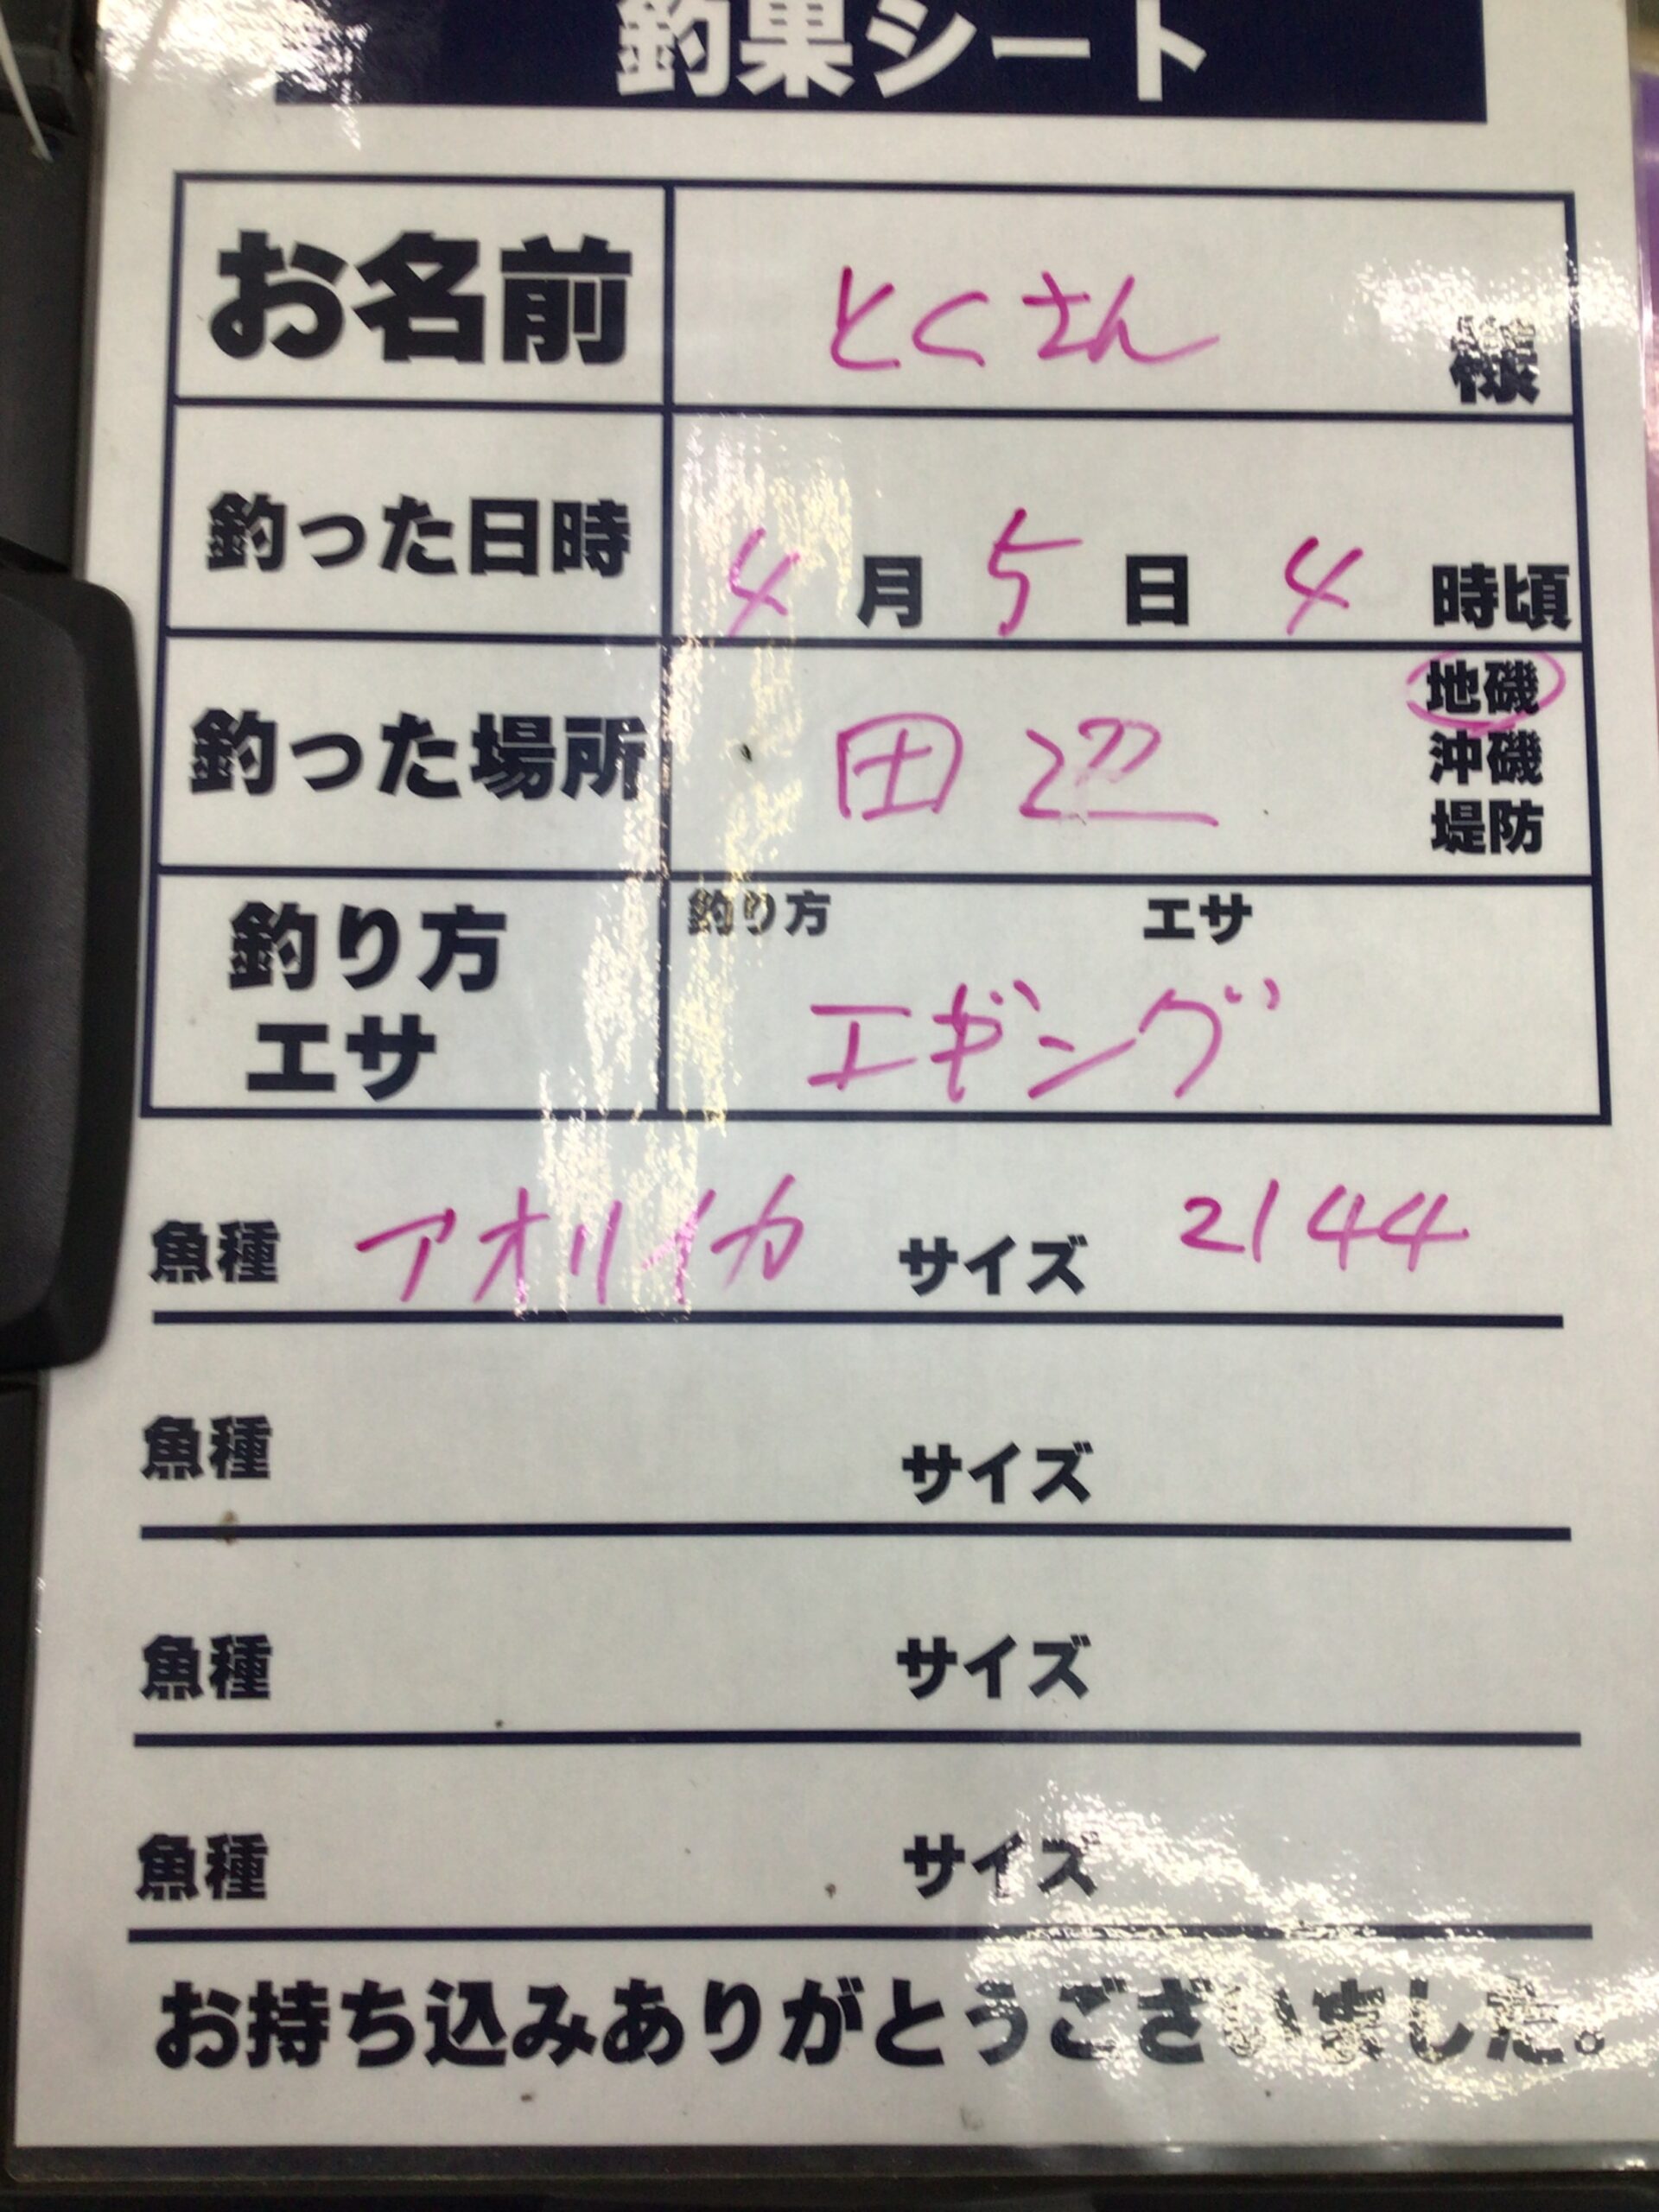 釣果シート
お名前 とくさん 様
釣った日時 4月5日 4時頃
釣った場所 田辺 地磯
沖磯
堤防
釣り方 エサ
釣り方
エサ
エギング
魚種 アオリイカ サイズ 2144
魚種 サイズ
魚種 サイズ
魚種 サイズ
お持ち込みありがとうございました。